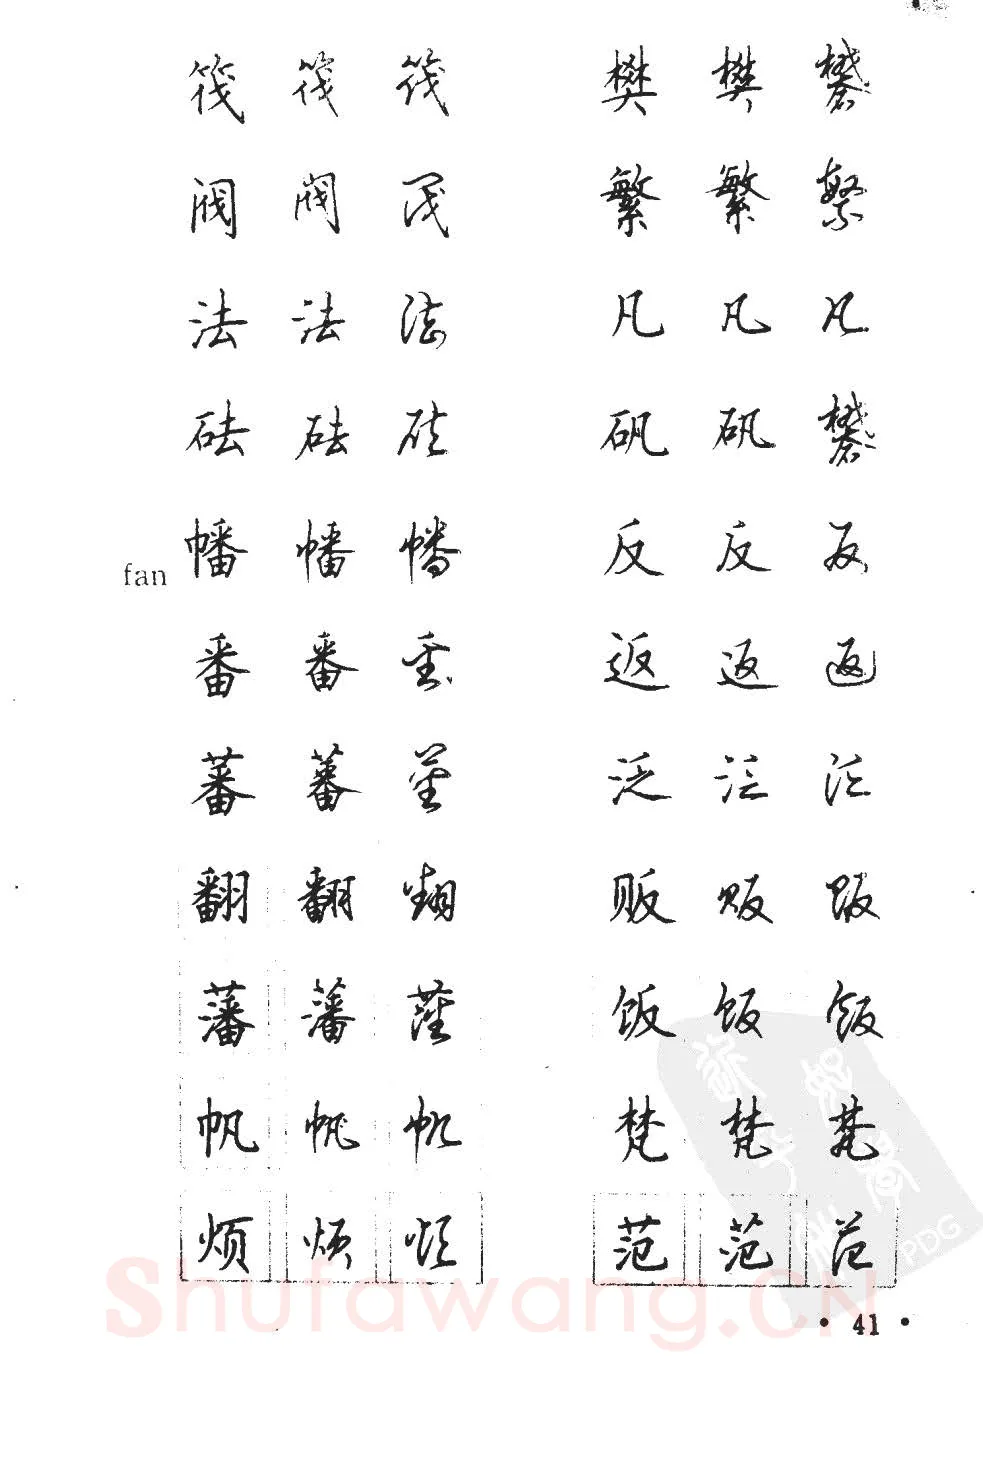 筏 筏 筏 樊 樊 樊
阀 阀 阀 繁 繁 繁
法 法 法 凡 凡 凡
砝 砝 砝 矾 矾 矾
fan 幡 幡 幡 反 反 反
番 番 番 返 返 返
蕃 蕃 蕃 泛 泛 泛
翻 翻 翻 贩 贩 贩
藩 藩 藩 饭 饭 饭
帆 帆 帆 梵 梵 梵
烦 烦 烦 范 范 范
PDG
Shufawang.CN
• 41 •